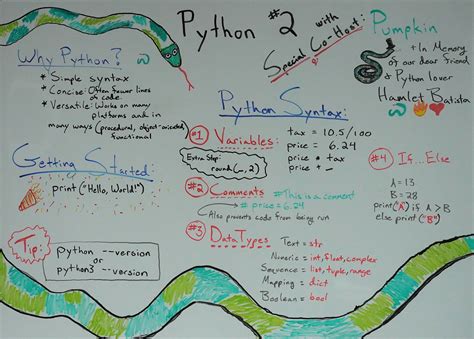 Python #2
with
Special Co-Host:
Pumpkin
+ In Memory
of our dear friend
& Python lover
Hamlet Batista
Why Python?
* Simple syntax
* Concise: Often fewer lines
of code
* Versatile: Works on many
platforms and in
many ways (procedural, object-oriented,
functional
Getting Started:
print ("Hello, World!")
Tip:
python --version
or
python3 --version
Python Syntax:
#1 Variables:
Extra Step:
round(_, 2)
tax = 10.5/100
price = 6.24
price * tax
price + _
#2 Comments
#This is a comment
# price = 6.24
Also prevents code from being run
#3 Data Types
Text = str
Numeric = int, float, complex
Sequence = list, tuple, range
Mapping = dict
Boolean = bool
#4 If...Else
A = 13
B = 28
print("A") if A > B
else print("B")